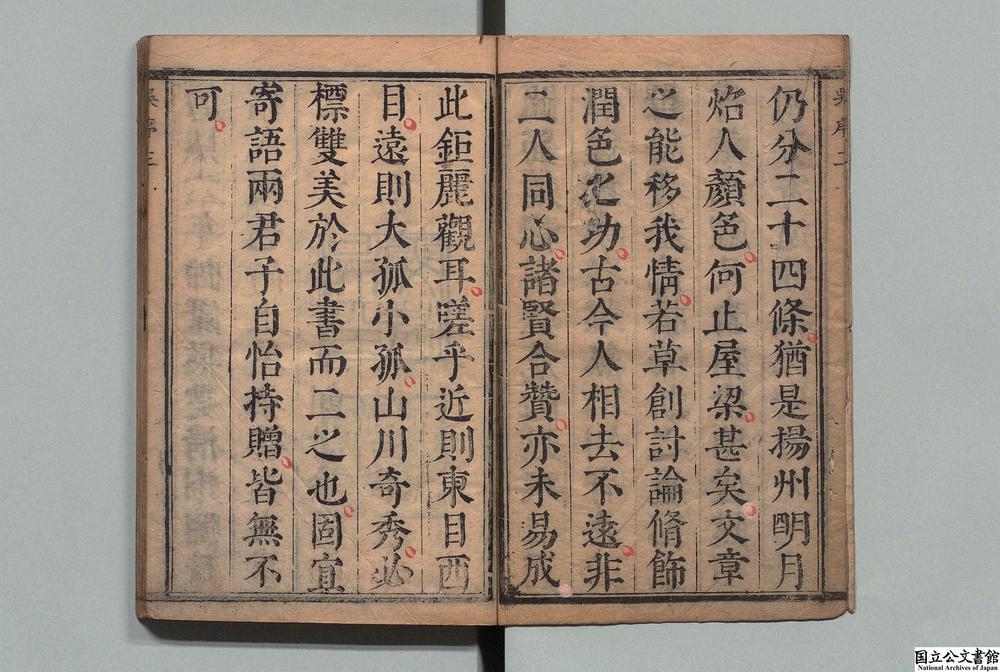 仍分二十四條猶是揚州明月
焰人顏色何止屋梁甚矣文章
之能移我情若草創討論脩飾
潤色之功古今人相去不遠非
二人同心諸賢合贊亦未易成
此鉅麗觀耳嗟乎近則東目西
目遠則大孤小孤山川奇秀必
標雙美於此書而二之也固宜
寄語兩君子自怡持贈皆無不
可
吳序二
吳序三
国立公文書館
National Archives of Japan